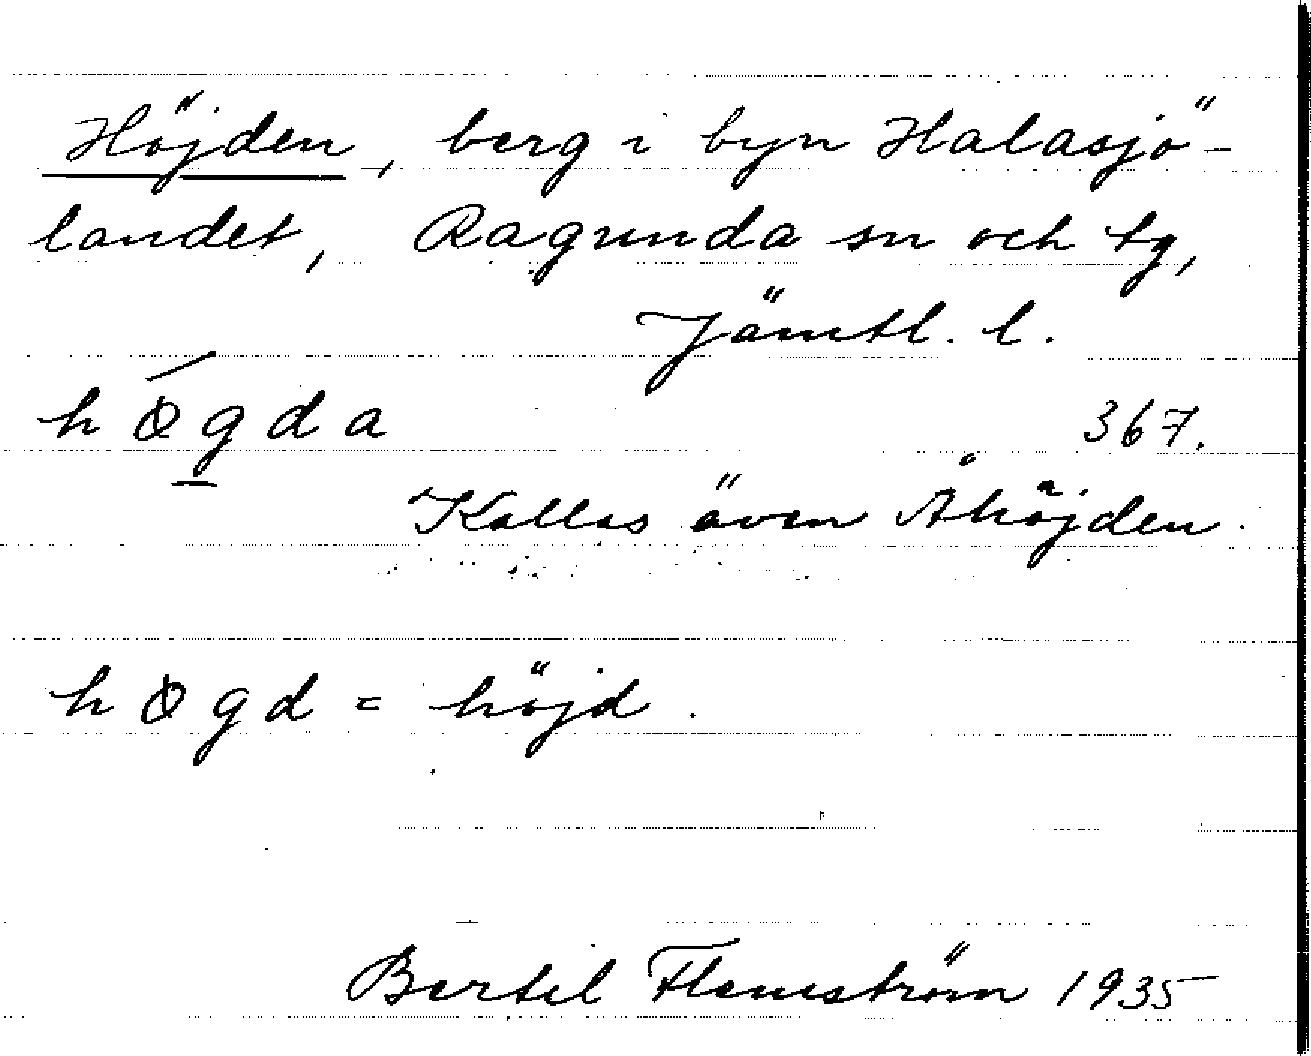 Höjden, berg i byn Halasjö-
landet, Ragunda sn och tg,
Jämtl. l.
hǿgda 367.
Kallas även Åhöjden.
høgd = höjd.
Bertil Flemström 1935